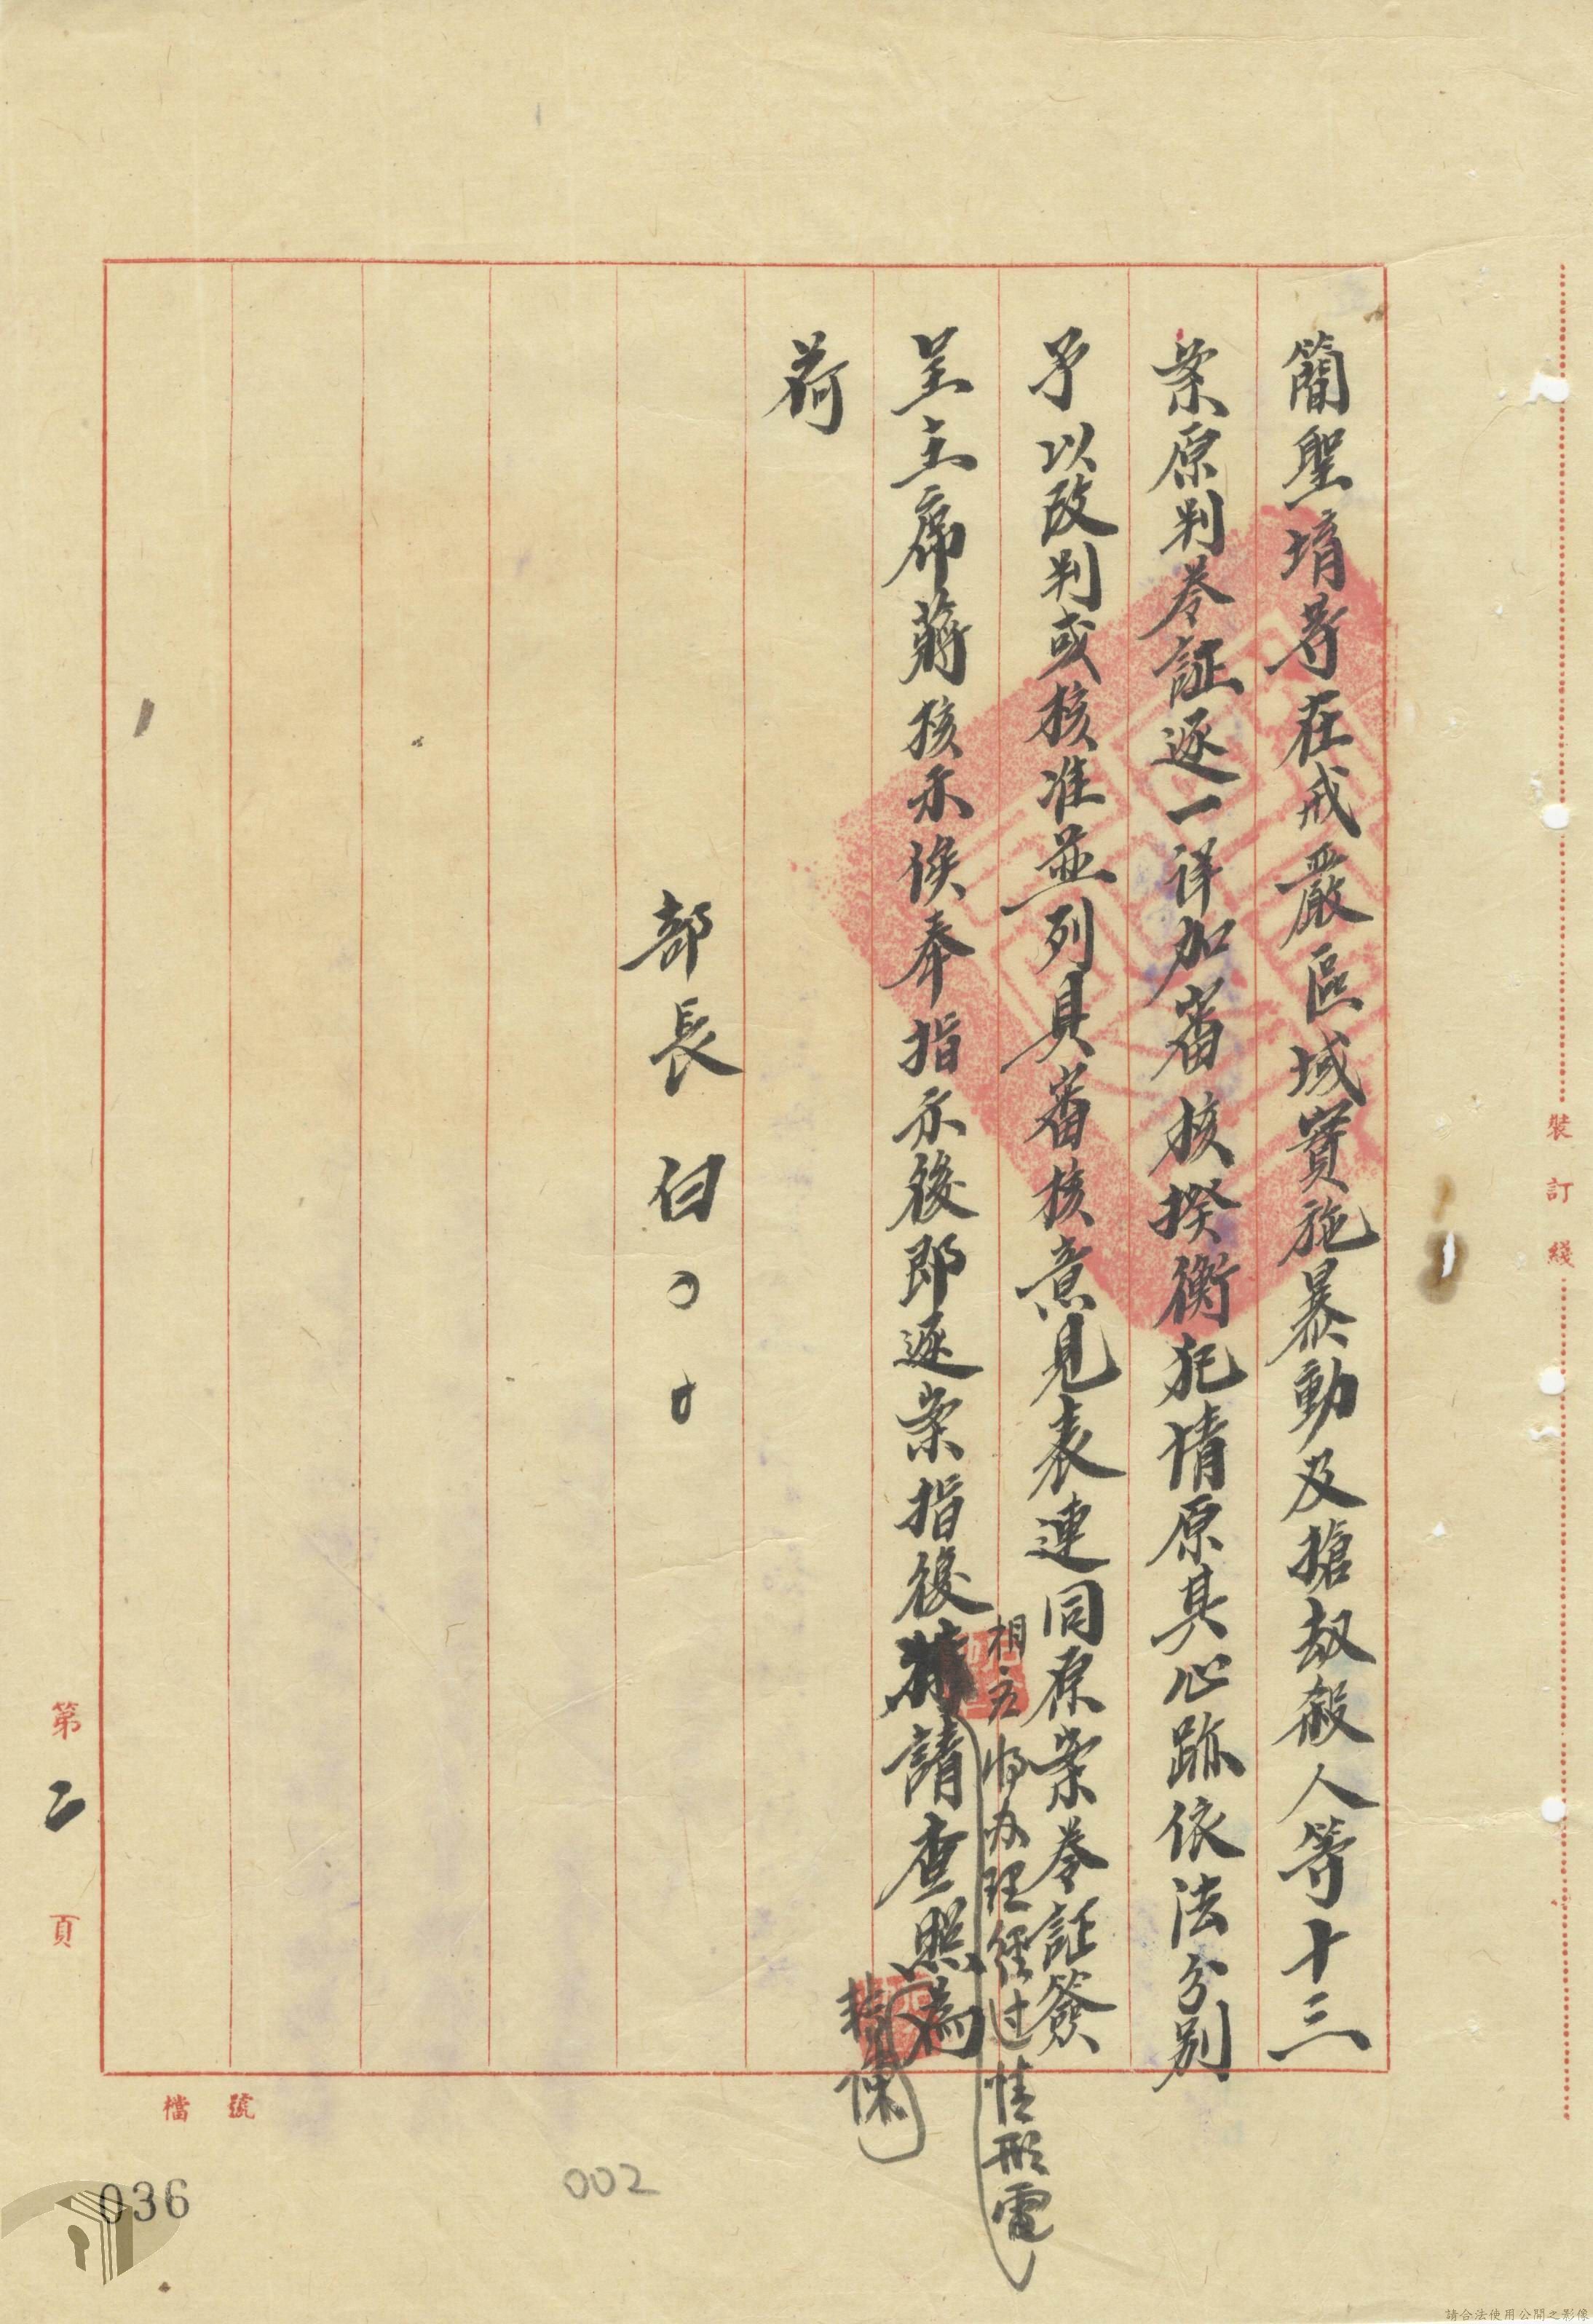 簡聖堉等在戒嚴區域實施暴動及搶劫殺人等十三
案原判卷証逐一详加審核揆衡犯情原其心跡依法分别
予以改判或核准並列具審核意見表連同原案卷証簽
呈主席蔣核示俟奉指示後即逐案指復
相应将办理經过情形電
請查照為
荷
部長 白
裝訂綫
第二頁
檔號
036
002
請合法使用公開之影像